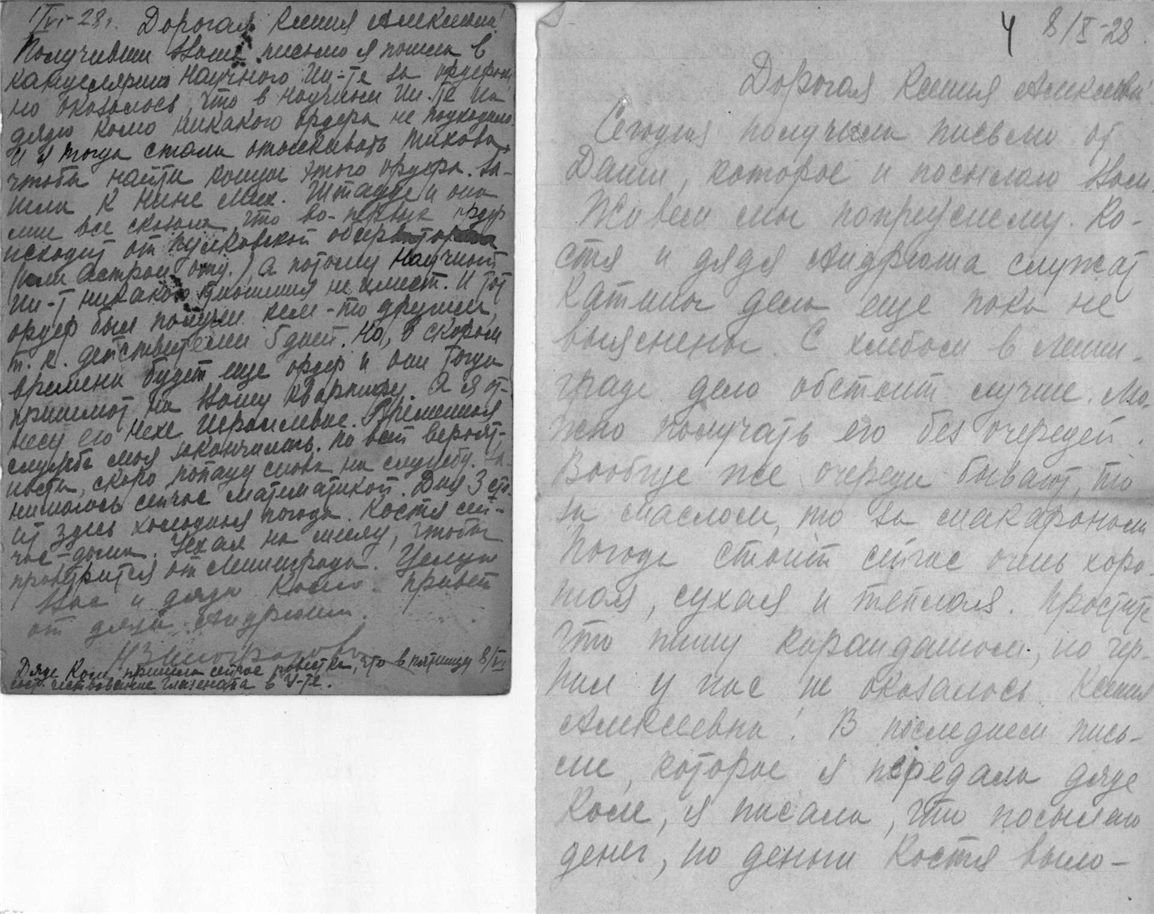 1/VI-28г. Дорогая Ксения Алексеевна!
Получивши Ваше письмо я пошла в
канцелярию Научного Ин-та за ордером,
но оказалось, что в Научном Ин-те на
дядю Колю никакого ордера не подходило
и я тогда стала отыскивать Тихова,
чтобы найти концы этого ордера. За-
шла к Нине Мих. Штауде и она
мне все сказала, что во-первых ордер
исходит от Пулковской обсерватории
(или Астроном. отд.) а потому Научный
Ин-т никакого отношения не имеет. И тот
ордер был получен кем-то другим,
т. к. действителен 5 дней. Но, в скором
времени будет еще ордер и они тогда
пришлют на Вашу квартиру. А я от-
несу его Нехе Израилевне. Временная
служба моя закончилась. По всей вероят-
ности, скоро попаду снова на службу. За-
нималась сейчас математикой. Дня 3 сто-
ит здесь холодная погода. Костя сей-
час дома. Уехал на Мсту, чтобы
проветрится от Ленинграда. Целую
Вас и дядю Колю. Привет
от дяди Андрюши.
Дяде Коле пришла сейчас повестка, что в пятницу 8/VI
чествование Глазенапа в У-те.
4 8/X-28
Дорогая Ксения Алексеевна!
Сегодня получили письмо от
Дани, которое и посылаю Вам.
Живем мы попрежнему. Ко-
стя и дядя Андрюша служат
Катины дела еще пока не
выяснены. С хлебом в Ленин-
граде дело обстоит лучше. Мо-
жно получать его без очередей.
Вообще же очереди бывают, то
за маслом, то за макаронами
Погода стоит сейчас очень хоро-
шая, сухая и теплая. Простите
что пишу карандашом, но чер-
нил у нас не оказалось. Ксения
Алексеевна! В последнем пись-
ме, которое я передала дяде
Коле, я писала, что посылаю
денег, но деньги Костя выло-